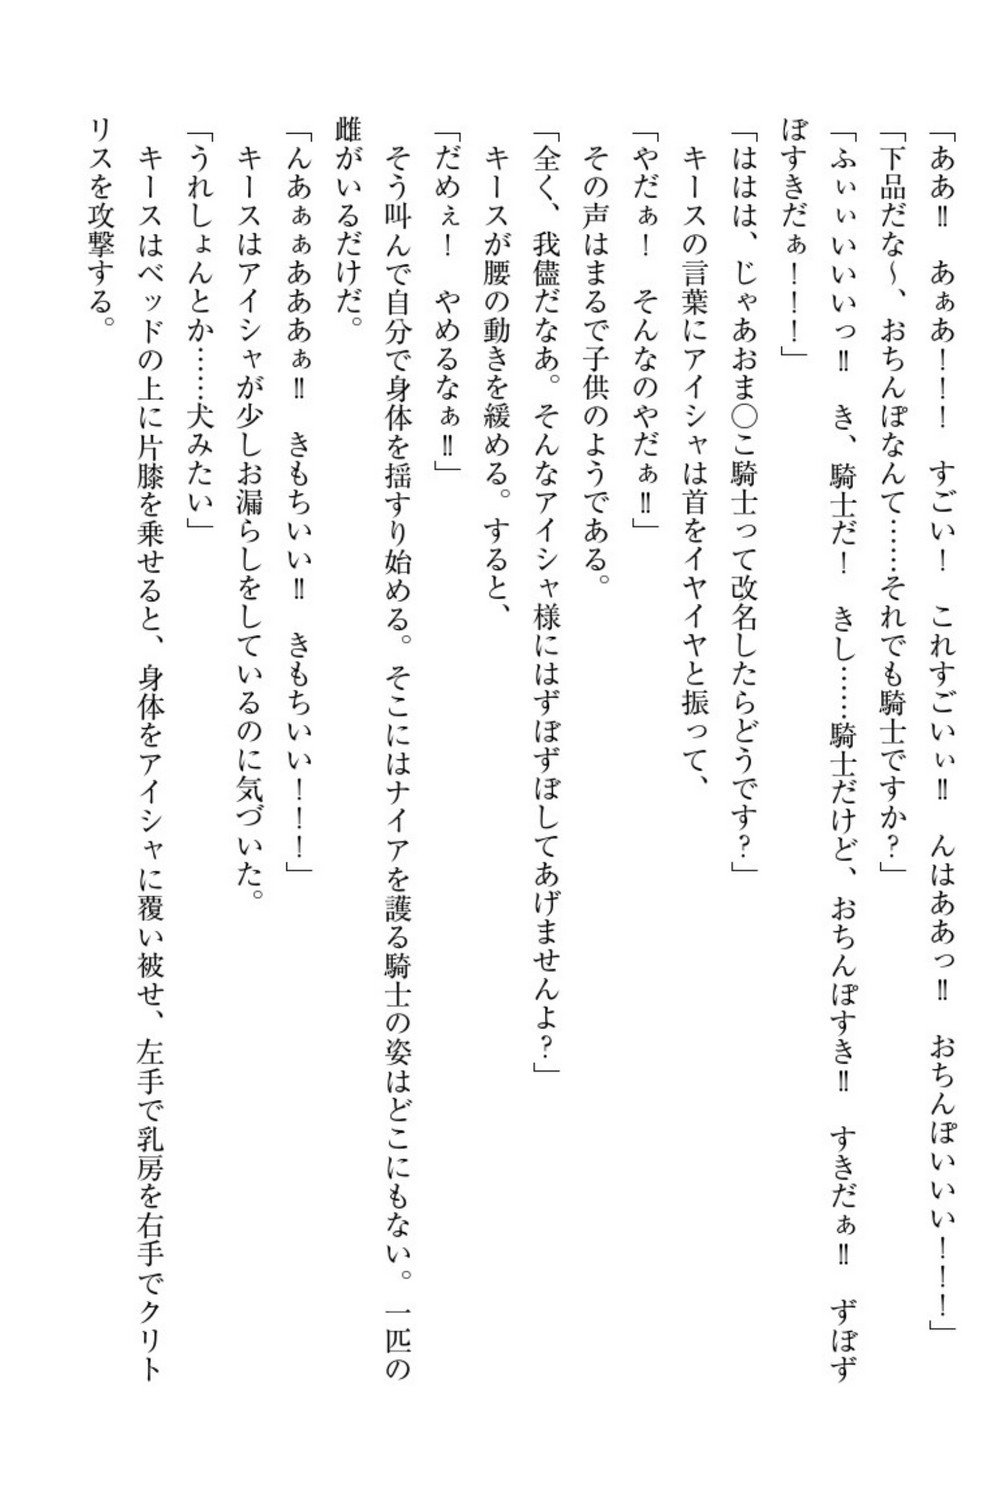 「ああ‼　あぁあ！！！　すごい！　これすごいぃ‼　んはああっ‼　おちんぽいいい！！！」
「下品だな～、おちんぽなんて……それでも騎士ですか？」
「ふぃぃいいいっ‼　き、騎士だ！　きし……騎士だけど、おちんぽすき‼　すきだぁ‼　ずぼず
ぼすきだぁ！！！」
「ははは、じゃあおま〇こ騎士って改名したらどうです？」
　キースの言葉にアイシャは首をイヤイヤと振って、
「やだぁ！　そんなのやだぁ‼」
　その声はまるで子供のようである。
「全く、我儘だなあ。そんなアイシャ様にはずぼずぼしてあげませんよ？」
　キースが腰の動きを緩める。すると、
「だめぇ！　やめるなぁ‼」
　そう叫んで自分で身体を揺すり始める。そこにはナイアを護る騎士の姿はどこにもない。一匹の
雌がいるだけだ。
「んあぁぁあああぁ‼　きもちいい‼　きもちいい！！！」
　キースはアイシャが少しお漏らしをしているのに気づいた。
「うれしょんとか……犬みたい」
　キースはベッドの上に片膝を乗せると、身体をアイシャに覆い被せ、左手で乳房を右手でクリト
リスを攻撃する。